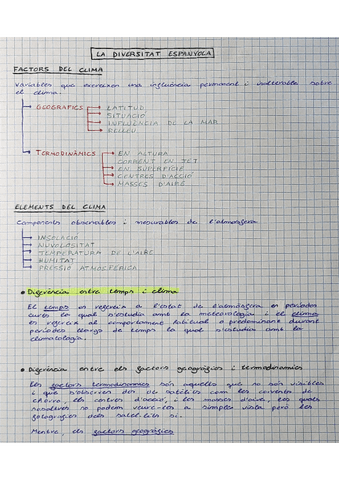 LA DIVERSITAT ESPANYOLA
FACTORS DEL CLIMA
Variables que exerceixen una influència permanent i inalterable sobre
el clima.
GEOGRÀFICS
LATITUD
SITUACIÓ
INFLUÈNCIA DE LA MAR
RELLEU
TERMODINÀMICS
EN ALTURA
CORRENT EN JET
EN SUPERFÍCIE
CENTRES D'ACCIÓ
MASSES D'AIRE
ELEMENTS DEL CLIMA
Components observables i mesurables de l'atmosfera
INSOLACIÓ
NUVOLOSITAT
TEMPERATURA DE L'AIRE
HUMITAT
PRESSIÓ ATMOSFÈRICA
• Diferència entre temps i clima
El temps es refereix a l'estat de l'atmosfera en períodes
curts la qual s'estudia amb la meteorologia i el clima
es refereix al comportament habitual o predominant durant
períodes llargs de temps la qual s'estudia amb la
climatologia.
• Diferència entre els factors geogràfics i termodinàmics
Els factors termodinàmics són aquells que no són visibles
i que s'observen des de satèl·lits com les corrents de
chorro, els centres d'acció, i les masses d'aire, les quals
nosaltres no podem veure-les a simple vista però les
fotografies dels satèl·lits sí.
Mentre, els factors geogràfics